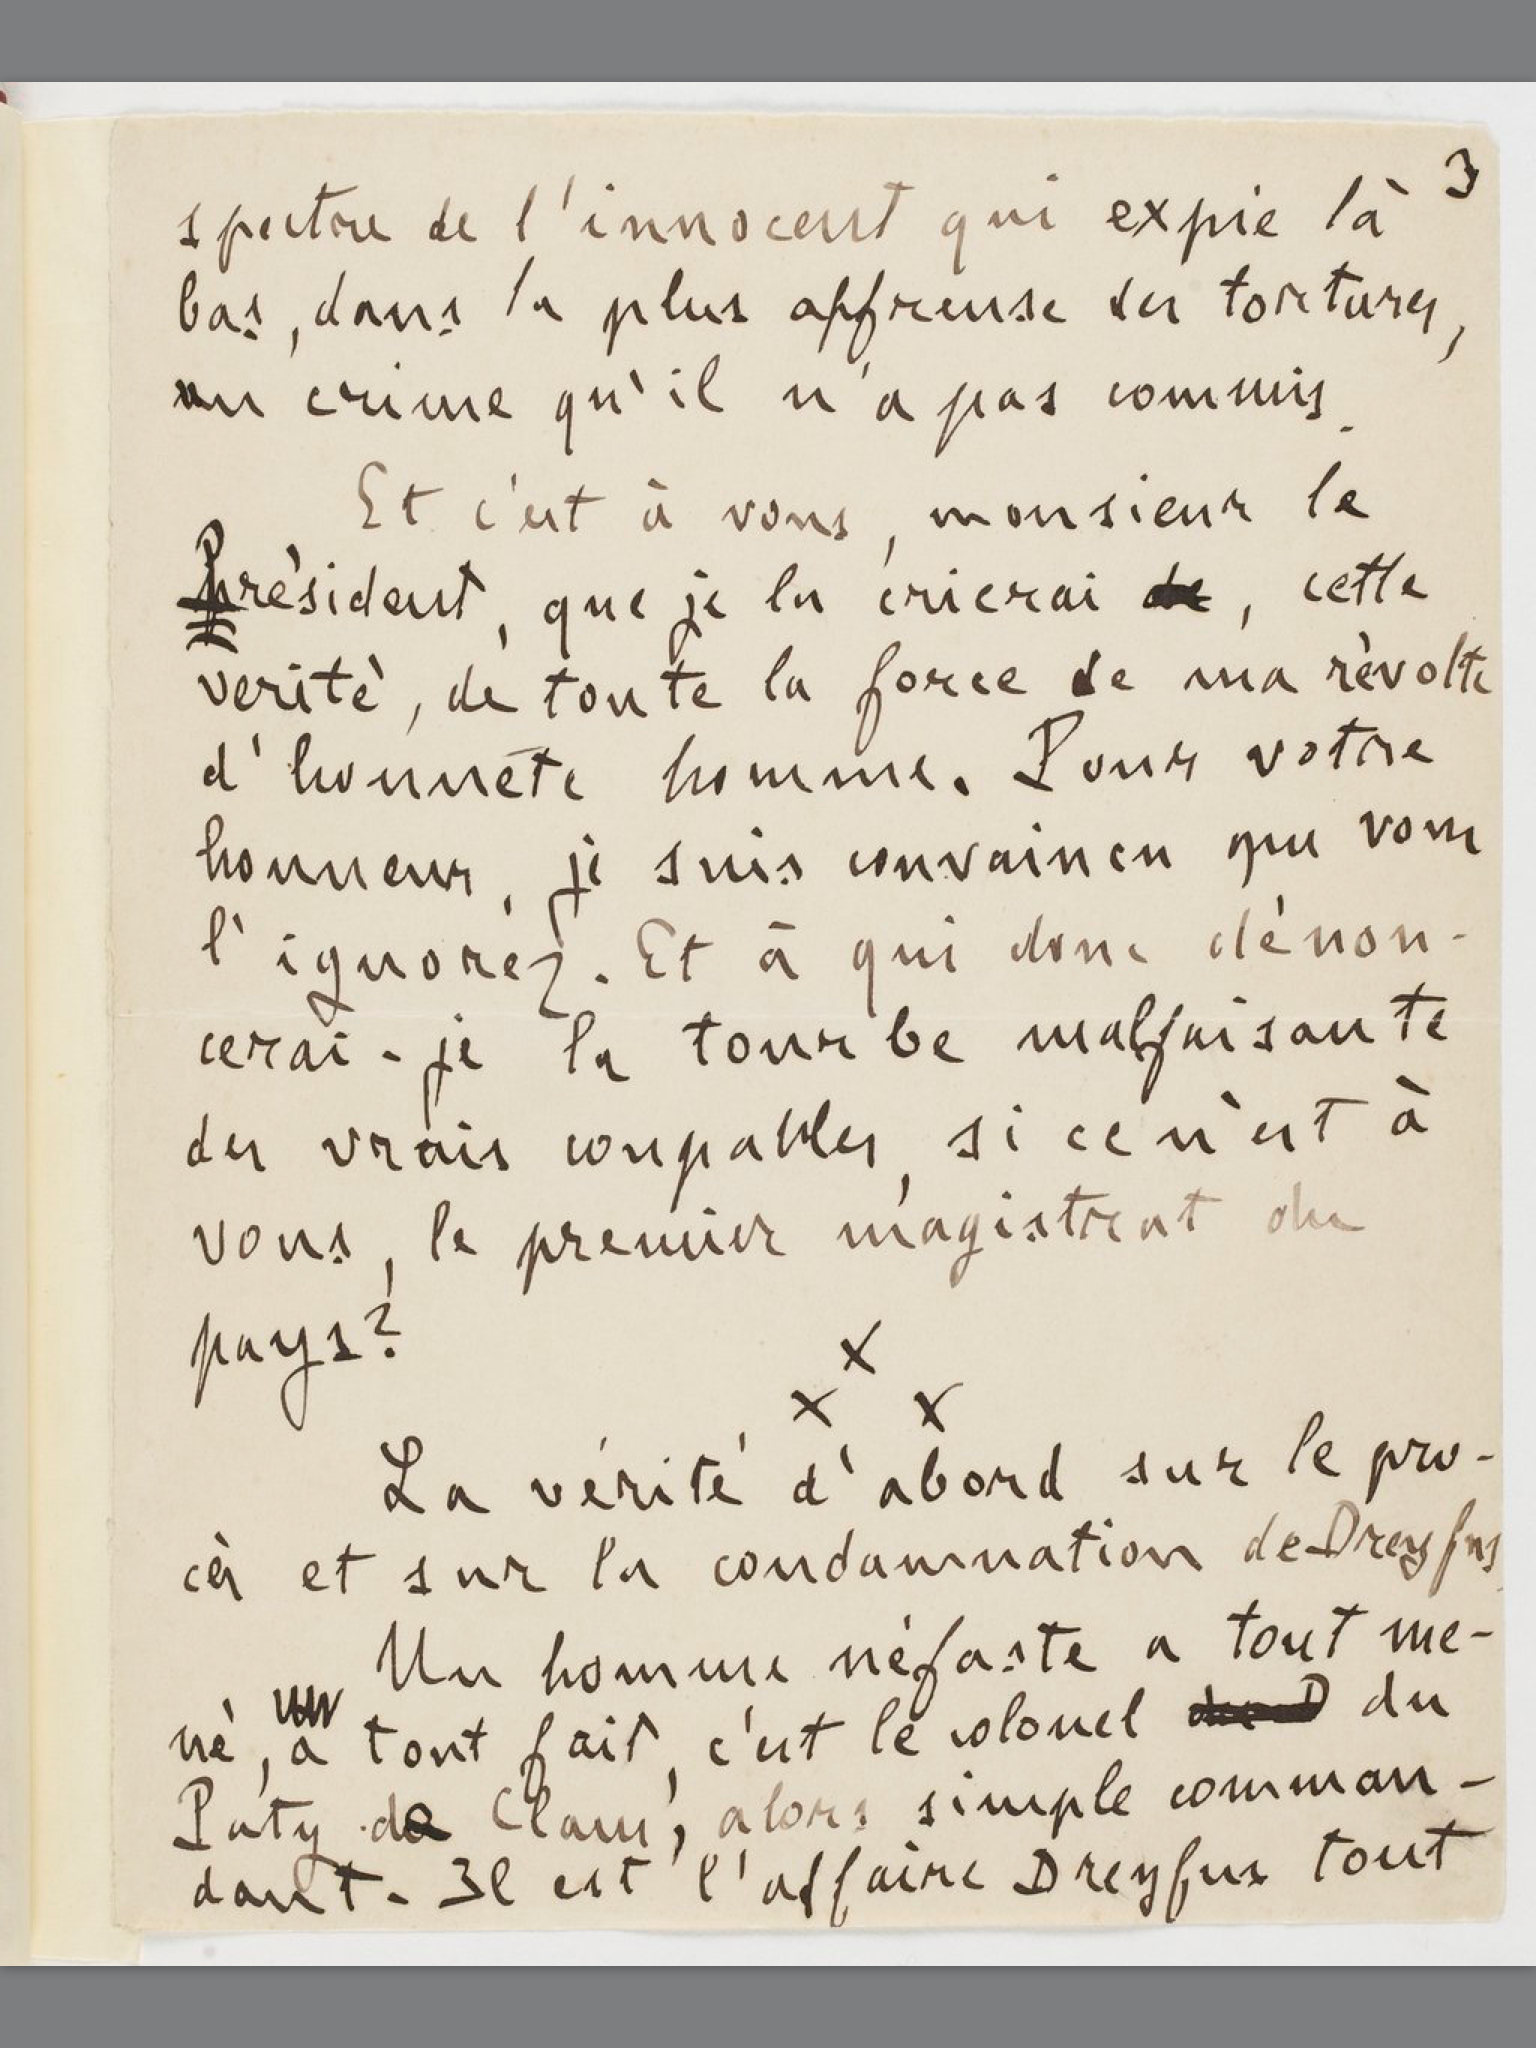 3
spectre de l'innocent qui expie là
bas, dans la plus affreuse des tortures,
un crime qu'il n'a pas commis.
Et c'est à vous, monsieur le
Président, que je la crierai de, cette
verité, de toute la force de ma révolte
d'honnête homme. Pour votre
honneur, je suis convaincu que vous
l'ignorez. Et à qui donc dénon-
cerai-je la tourbe malfaisante
des vrais coupables, si ce n'est à
vous, le premier magistrat du
pays?
x
x x
La vérité d'abord sur le pro-
cès et sur la condamnation de Dreyfus.
Un homme néfaste a tout me-
né, a tout fait, c'est le colonel du
Paty de Clam, alors simple comman-
dant. Il est l'affaire Dreyfus tout